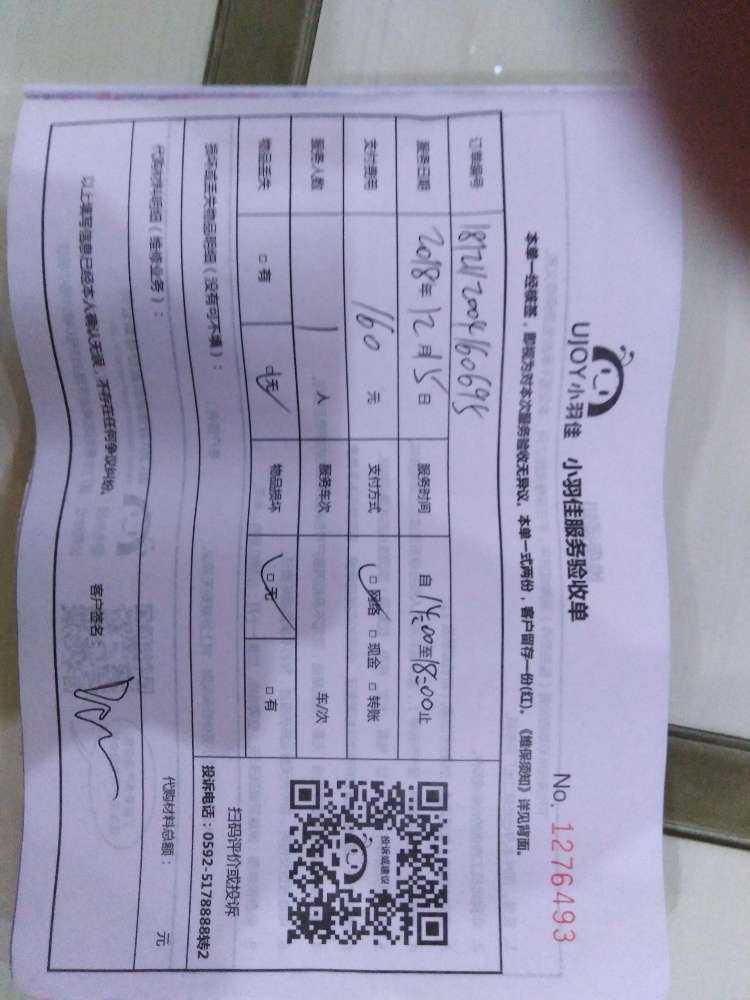 UJOY小羽佳 小羽佳服务验收单
No. 1276493
本单一经核签，即视为对本次服务验收无异议。本单一式两份，客户留存一份(红)。《维保须知》详见背面。
订单编号
服务日期 2018年12月15日 服务时间 自14:00至18:00止
支付费用 160 元 支付方式 □网络 □现金 □转账
服务人数 1 人 服务车次 车/次
物品丢失 □有 □无 物品损坏 □无 □有
投诉或建议
扫码评价或投诉
投诉电话：0592-5178888转2
损坏或丢失物品明细（没有可不填）：
代购材料明细（维修业务）：
代购材料总额： 元
以上填写信息已经本人确认无误，不存在任何争议纠纷。
客户签名：